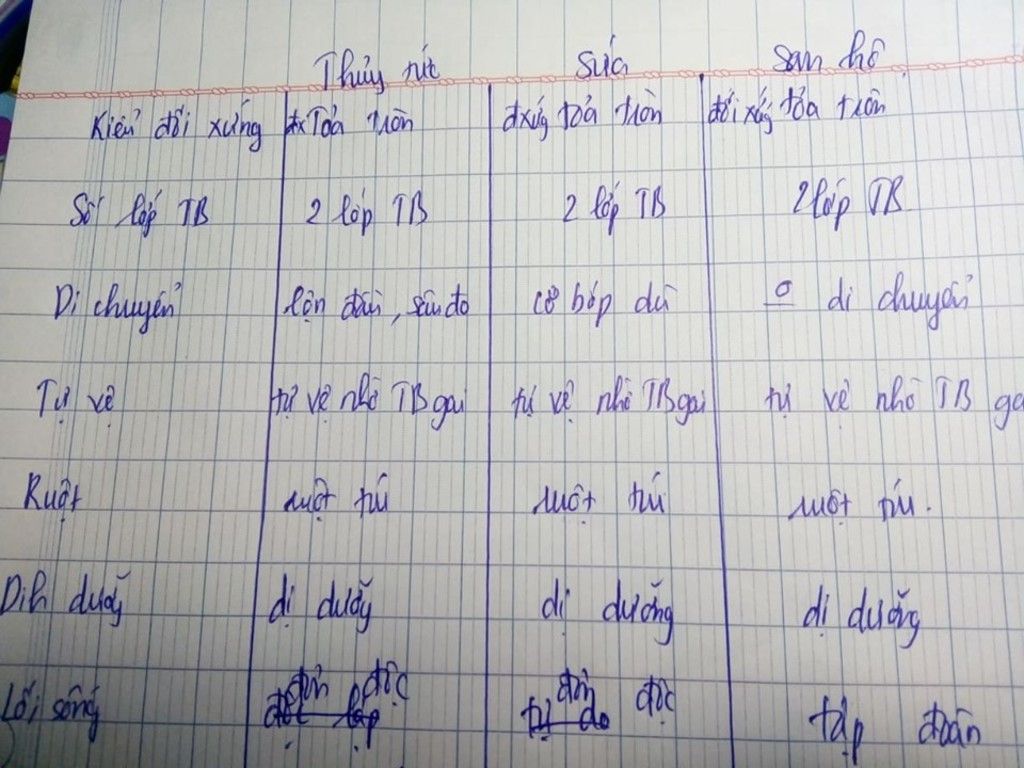 Thủy tức Sứa San hô
Kiểu đối xứng đx Tỏa tròn đxứng tỏa tròn đối xứg tỏa tròn
Số lớp TB 2 lớp TB 2 lớp TB 2 lớp TB
Di chuyển lộn đầu, sâu đo co bóp dù o di chuyển
Tự vệ tự vệ nhờ TB gai tự vệ nhờ TB gai tự vệ nhờ TB ga
Ruột ruột túi ruột túi ruột túi.
Dih dưỡg dị dưỡg dị dưỡng dị dưỡng
Lối sống đơn độc đơn độc tập đoàn
độc lập tự do